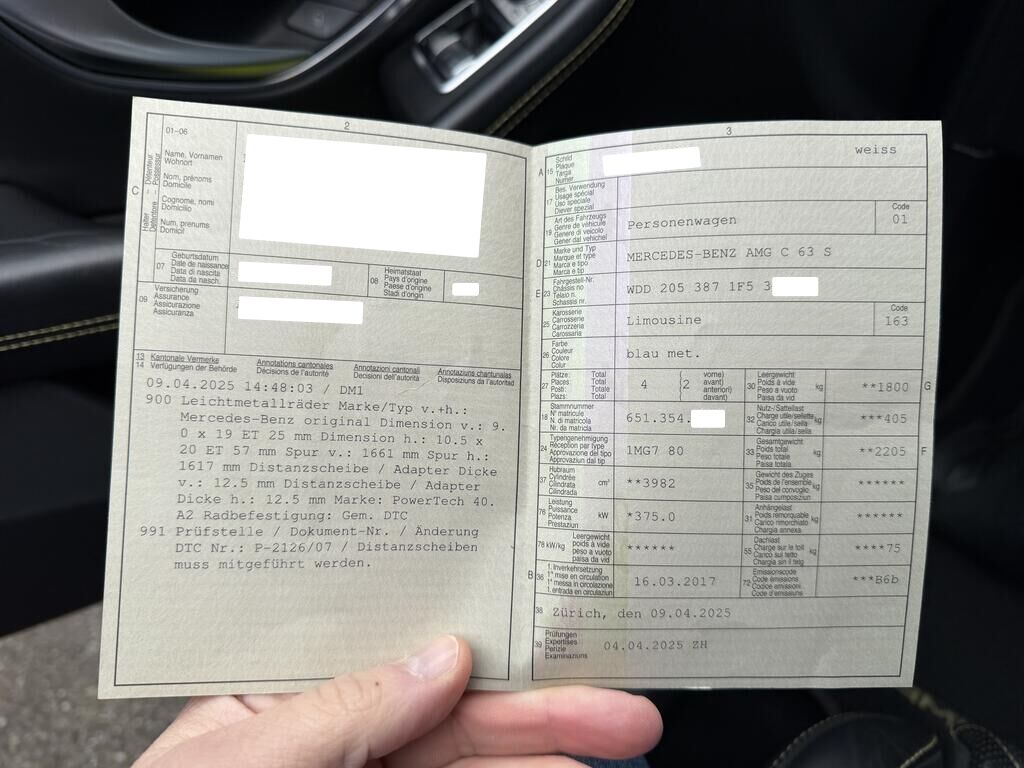 2
01-06
Name, Vornamen
Wohnort
Nom, prénoms
Domicile
Cognome, nomi
Domicilio
Num, prenums
Domicil
C
Halter – Détenteur
Detentore – Possessur
07
Geburtsdatum
Date de naissance
Data di nascita
Data da nasch.
08
Heimatstaat
Pays d'origine
Paese d'origine
Stadi d'origin
09
Versicherung
Assurance
Assicurazione
Assicuranza
13 Kantonale Vermerke Annotations cantonales Annotazioni cantonali Annotaziuns chantunalas
14 Verfügungen der Behörde Décisions de l'autorité Decisioni dell'autorità Disposiziuns da l'autoritad
09.04.2025 14:48:03 / DM1
900 Leichtmetallräder Marke/Typ v.+h.:
Mercedes-Benz original Dimension v.: 9.
0 x 19 ET 25 mm Dimension h.: 10.5 x
20 ET 57 mm Spur v.: 1661 mm Spur h.:
1617 mm Distanzscheibe / Adapter Dicke
v.: 12.5 mm Distanzscheibe / Adapter
Dicke h.: 12.5 mm Marke: PowerTech 40.
A2 Radbefestigung: Gem. DTC
991 Prüfstelle / Dokument-Nr. / Änderung
DTC Nr.: P-2126/07 / Distanzscheiben
muss mitgeführt werden.
3
A 15
Schild
Plaque
Targa
Numer
weiss
17
Bes. Verwendung
Usage spécial
Uso speciale
Diever spezial
19
Art des Fahrzeugs
Genre de véhicule
Genere di veicolo
Gener dal vehichel
Personenwagen
Code
01
D 21
Marke und Typ
Marque et type
Marca e tipo
Marca e tip
MERCEDES-BENZ AMG C 63 S
E 23
Fahrgestell-Nr.
Châssis no
Telaio n.
Schassis nr.
WDD 205 387 1F5 3
25
Karosserie
Carrosserie
Carrozzeria
Carossaria
Limousine
Code
163
26
Farbe
Couleur
Colore
Colur
blau met.
27
Plätze: Total
Places: Total
Posti: Totale
Plazs: Total
4
(2
vorne)
avant)
anteriori)
davant)
30
Leergewicht
Poids à vide
Peso a vuoto
Paisa da vid
kg
**1800
G
18
Stammnummer
N° matricule
N. di matricola
Nr. da matricla
651.354.
32
Nutz-/Sattellast
Charge utile/sellette
Carico utile/sella
Chargia utila/sella
kg
***405
24
Typengenehmigung
Réception par type
Approvazione del tipo
Approvaziun dal tip
1MG7 80
33
Gesamtgewicht
Poids total
Peso totale
Paisa totala
kg
**2205
F
37
Hubraum
Cylindrée
Cilindrata
Cilindrada
cm³
**3982
35
Gewicht des Zuges
Poids de l'ensemble
Peso del convoglio
Paisa cumposiziun
kg
******
76
Leistung
Puissance
Potenza
Prestaziun
kW
*375.0
31
Anhängelast
Poids remorquable
Carico rimorchiato
Chargia annexa
kg
******
78 kW/kg
Leergewicht
poids à vuoto
peso a vuoto
paisa da vid
******
55
Dachlast
Charge sur le toit
Carico sul tetto
Chargia sin il tetg
kg
****75
B 36
1. Inverkehrsetzung
1re mise en circulation
1a messa in circolazione
1. entrada en circulaziun
16.03.2017
72
Emissionscode
Code émissions
Codice emissioni
Code d'emissiuns
***B6b
38
Zürich, den 09.04.2025
39
Prüfungen
Expertises
Perizie
Examinaziuns
04.04.2025 ZH